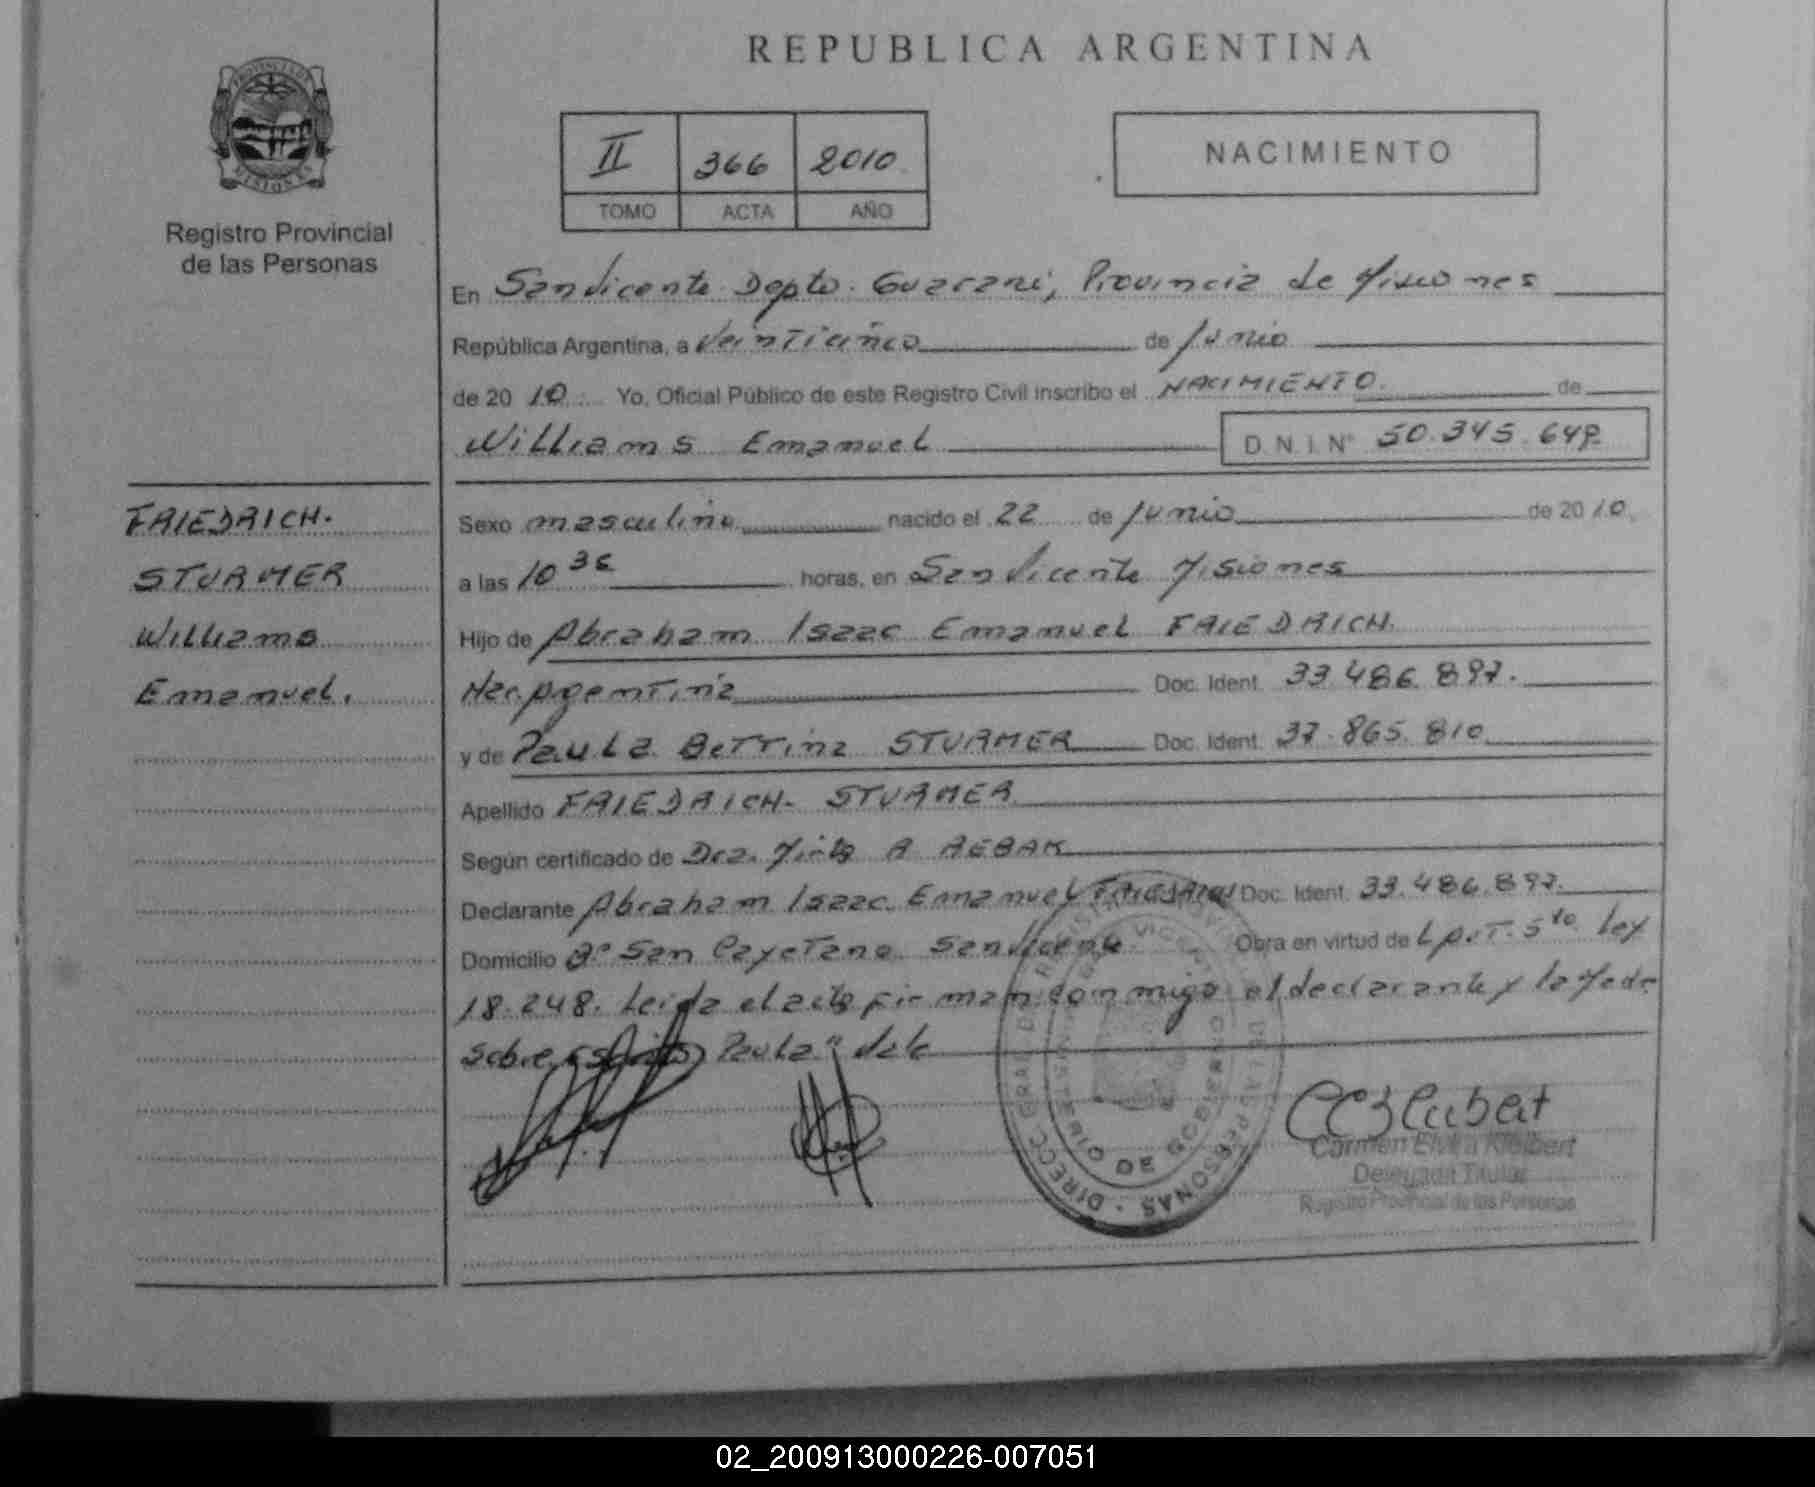 REPUBLICA ARGENTINA
PROVINCIA DE MISIONES
Registro Provincial
de las Personas
II 366 2010
TOMO ACTA AÑO
NACIMIENTO
En San Vicente Dapto. Guarani, Provincia de Misiones
República Argentina, a Veinticinco de Junio
de 2010 Yo, Oficial Público de este Registro Civil inscribo el NACIMIENTO. de
Williams Emanuel D.N.I.Nº 50.345.648
FRIEDRICH.
STURMER
Williams
Emanuel.
Sexo masculino nacido el 22 de Junio de 2010.
a las 10 36 horas, en San Vicente Misiones
Hijo de Abraham Isaac Emanuel FRIEDRICH.
Nac. Argentina Doc. Ident. 33.486.897.
y de Paula Bettina STURMER Doc. Ident. 37.865.810
Apellido FRIEDRICH- STURMER
Según certificado de Dra. Mirta R REBAK
Declarante Abraham Isaac Emanuel FRIEDRICH Doc. Ident. 33.486.897.
Domicilio Bº San Cayetano San Vicente Obra en virtud de L p. T. 5to Ley
18.248. Leida el acta firman conmigo el declarante y la Madre
sobre escrito Paula" vale
DIRECC. GRAL. DE REGISTRO PROVINCIAL DE LAS PERSONAS
MINISTERIO DE GOBIERNO
SAN VICENTE
Carmen Elvira Kleibert
Delegada Titular
Registro Provincial de las Personas
02_200913000226-007051